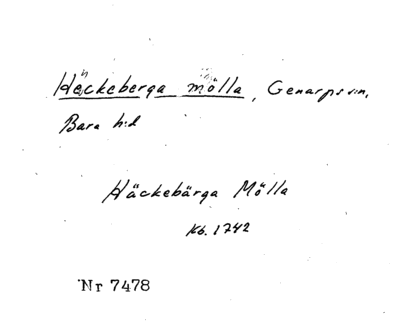 Häckeberga mölla, Genarps sn,
Bara h:d
Häckebärga Mölla
Kb. 1742
Nr 7478